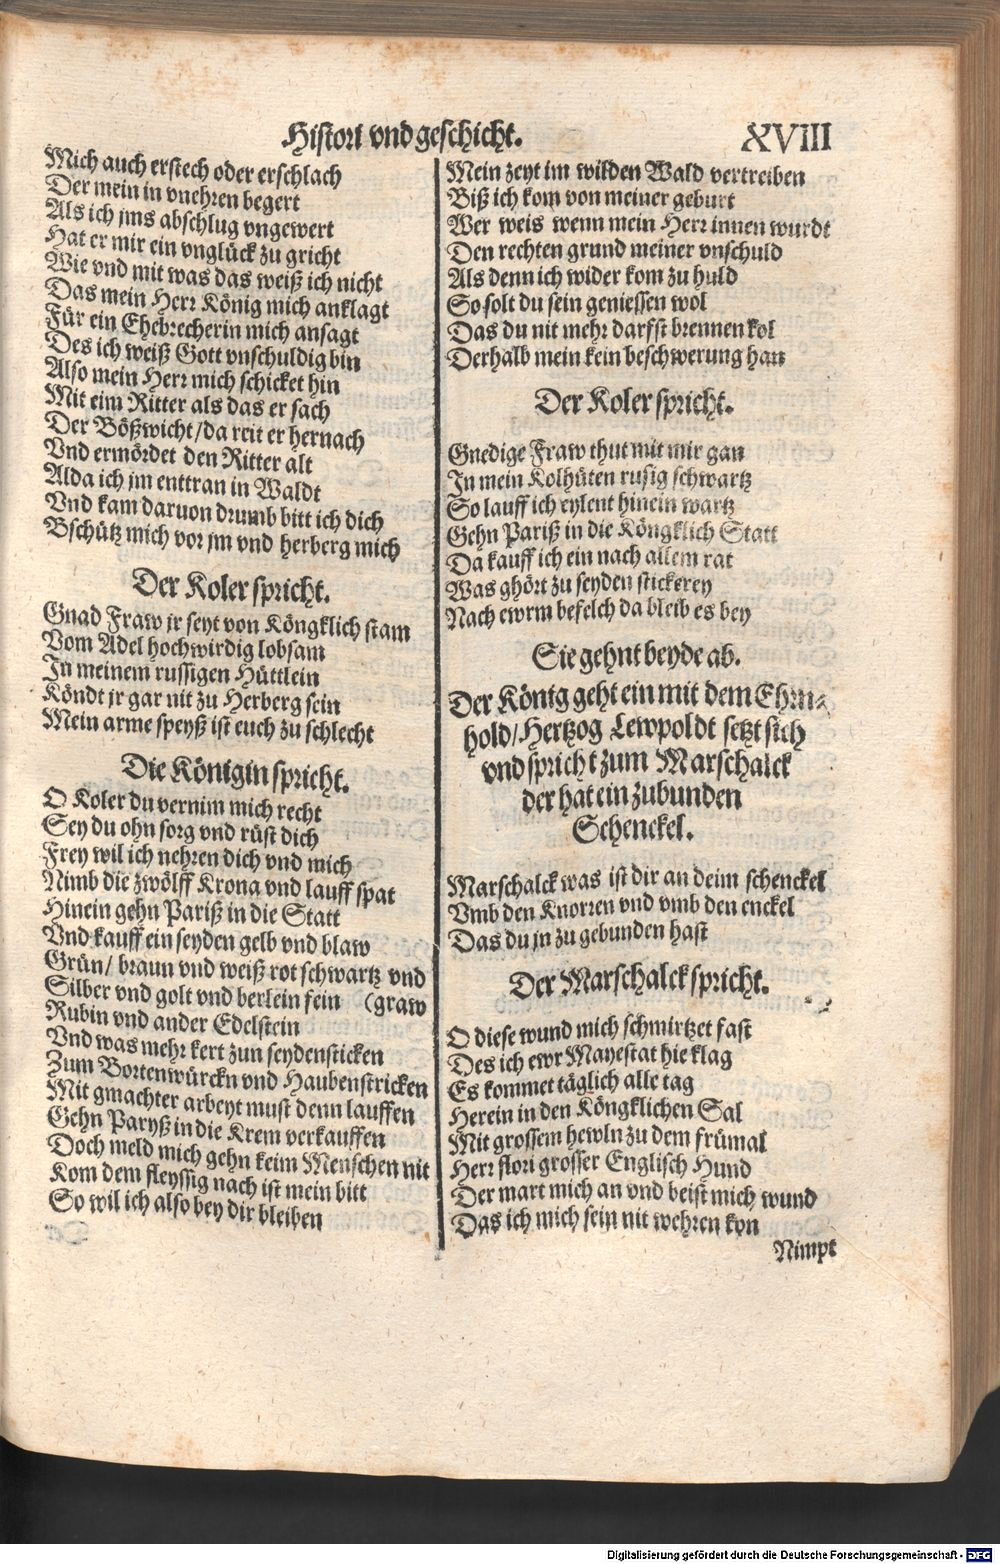 Histori vnd geschicht. XVIII
Mich auch erstech oder erschlach
Der mein in vnehren begert
Als ich jms abschlug vngewert
Hat er mir ein vnglück zu gricht
Wie vnd mit was das weiß ich nicht
Das mein Herr König mich anklagt
Für ein Ehebrecherin mich ansagt
Des ich weiß Gott vnschuldig bin
Also mein Herr mich schicket hin
Mit eim Ritter als das er sach
Der Bößwicht/da reit er hernach
Vnd ermördet den Ritter alt
Alda ich jm enttran in Waldt
Vnd kam daruon drumb bitt ich dich
Bschütz mich vor jm vnd herberg mich
Der Koler spricht.
Gnad Fraw jr seyt von Köngklich stam
Vom Adel hochwirdig lobsam
In meinem russigen Hüttlein
Köndt jr gar nit zu Herberg sein
Mein arme speyß ist euch zu schlecht
Die Königin spricht.
O Koler du vernim mich recht
Sey du ohn sorg vnd rüst dich
Frey wil ich nehren dich vnd mich
Nimb die zwölff Krona vnd lauff spat
Hinein gehn Pariß in die Statt
Vnd kauff ein seyden gelb vnd blaw
Grün/ braun vnd weiß rot schwartz vnd
Silber vnd golt vnd berlein fein (graw
Rubin vnd ander Edelstein
Vnd was mehr kert zun seydensticken
Zum Bortenwürckn vnd Haubenstricken
Mit gmachter arbeyt must denn lauffen
Gehn Paryß in die Krem verkauffen
Doch meld mich gehn keim Menschen nit
Kom dem fleyssig nach ist mein bitt
So wil ich also bey dir bleiben
Mein zeyt im wilden Wald vertreiben
Biß ich kom von meiner geburt
Wer weis wenn mein Herr innen wurdt
Den rechten grund meiner vnschuld
Als denn ich wider kom zu huld
So solt du sein geniessen wol
Das du nit mehr darffst brennen kol
Derhalb mein kein beschwerung han
Der Koler spricht.
Gnedige Fraw thut mit mir gan
In mein Kolhüten rusig schwartz
So lauff ich eylent hinein wartz
Gehn Pariß in die Köngklich Statt
Da kauff ich ein nach allem rat
Was ghört zu seyden stickerey
Nach ewrm befelch da bleib es bey
Sie gehnt beyde ab.
Der König geht ein mit dem Ehrn-
hold/Hertzog Lewpoldt setzt sich
vnd spricht zum Marschalck
der hat ein zubunden
Schenckel.
Marschalck was ist dir an deim schenckel
Vmb den Knorren vnd vmb den enckel
Das du jn zu gebunden hast
Der Marschalck spricht.
O diese wund mich schmirtzet fast
Des ich ewr Mayestat hie klag
Es kommet täglich alle tag
Herein in den Köngklichen Sal
Mit grossem hewln zu dem frümal
Herr flori grosser Englisch Hund
Der mart mich an vnd beist mich wund
Das ich mich sein nit wehren kon
Nimpt
Digitalisierung gefördert durch die Deutsche Forschungsgemeinschaft - DFG